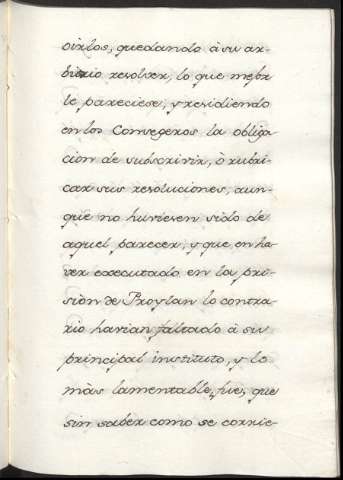 oirlos, quedando à su ar-
bitrio resolver, lo que mejor
le pareciese, y residiendo
en los Consegeros la obliga
cion de subscrivir, ò rubri-
car sus resoluciones, aun-
que no huviesen sido de
aquel parecer, y que en ha-
ver executado en la pri-
sion de Froylan lo contra-
rio havian faltado à su
principal instituto, y lo
màs lamentable, fue, que
sin saber como se corrie-